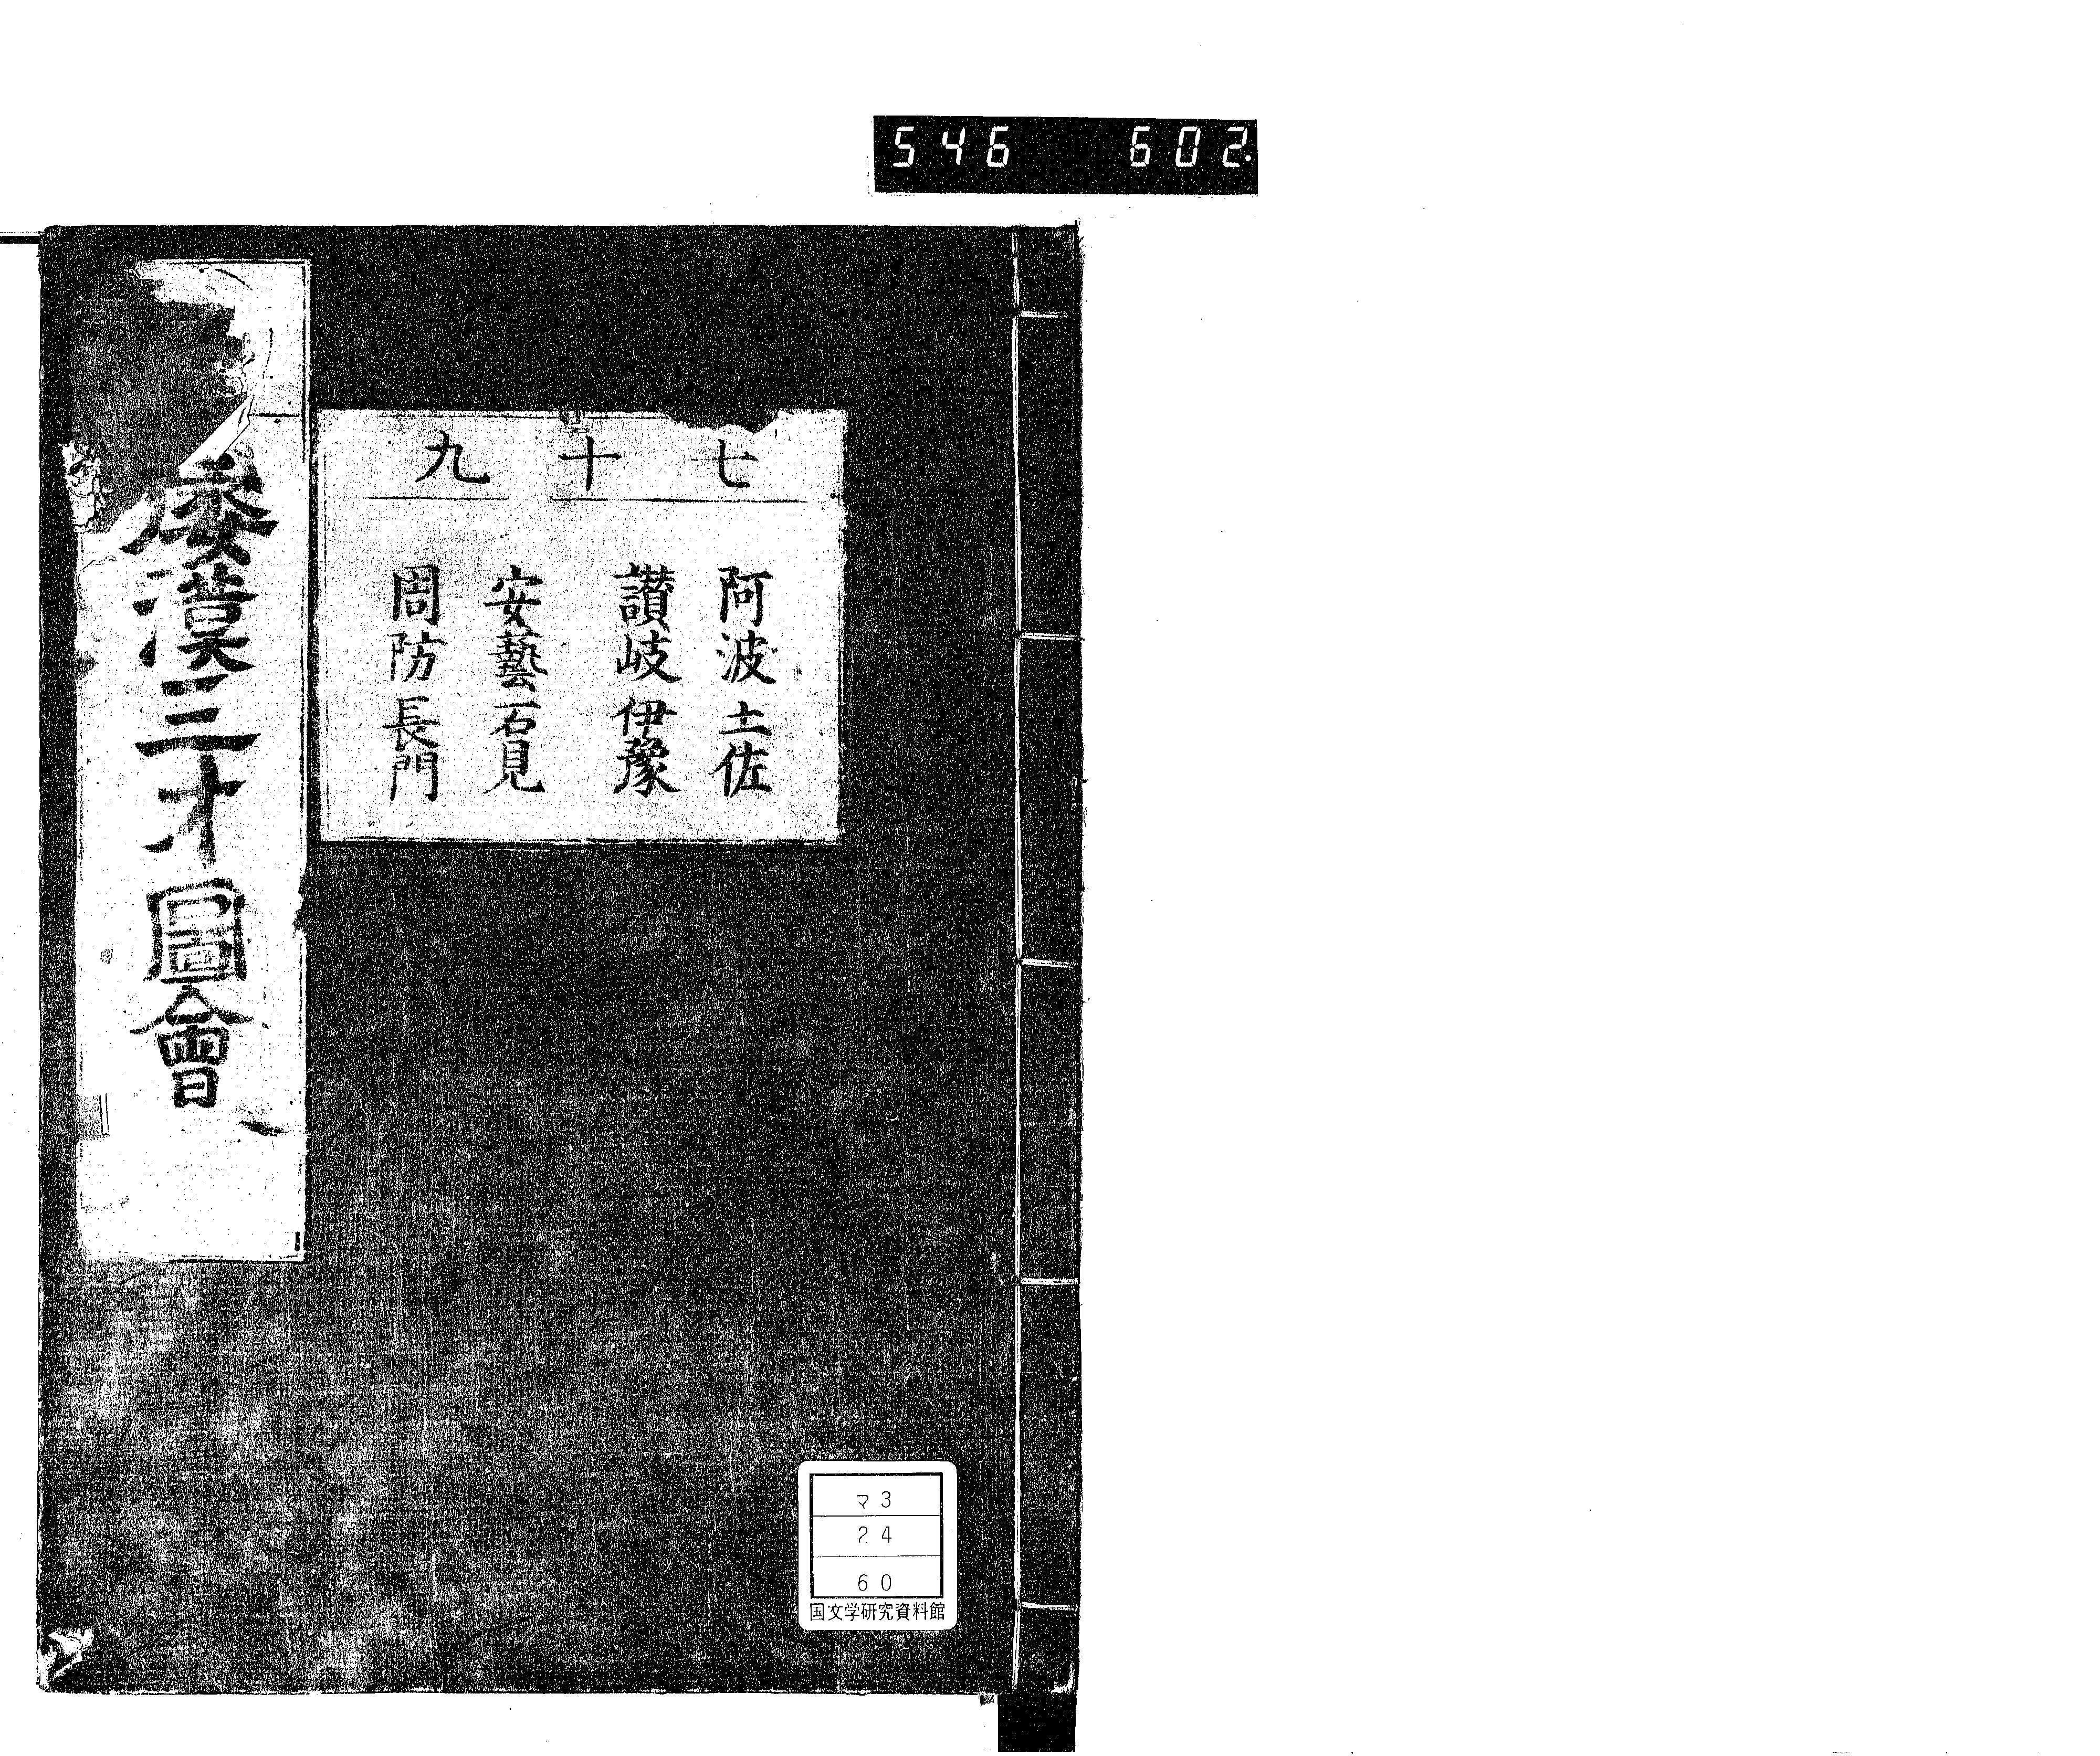 546 602.
七十九
阿波 土佐
讃岐 伊豫
安藝 石見
周防 長門
倭漢三才圖會
マ3
24
60
国文学研究資料館